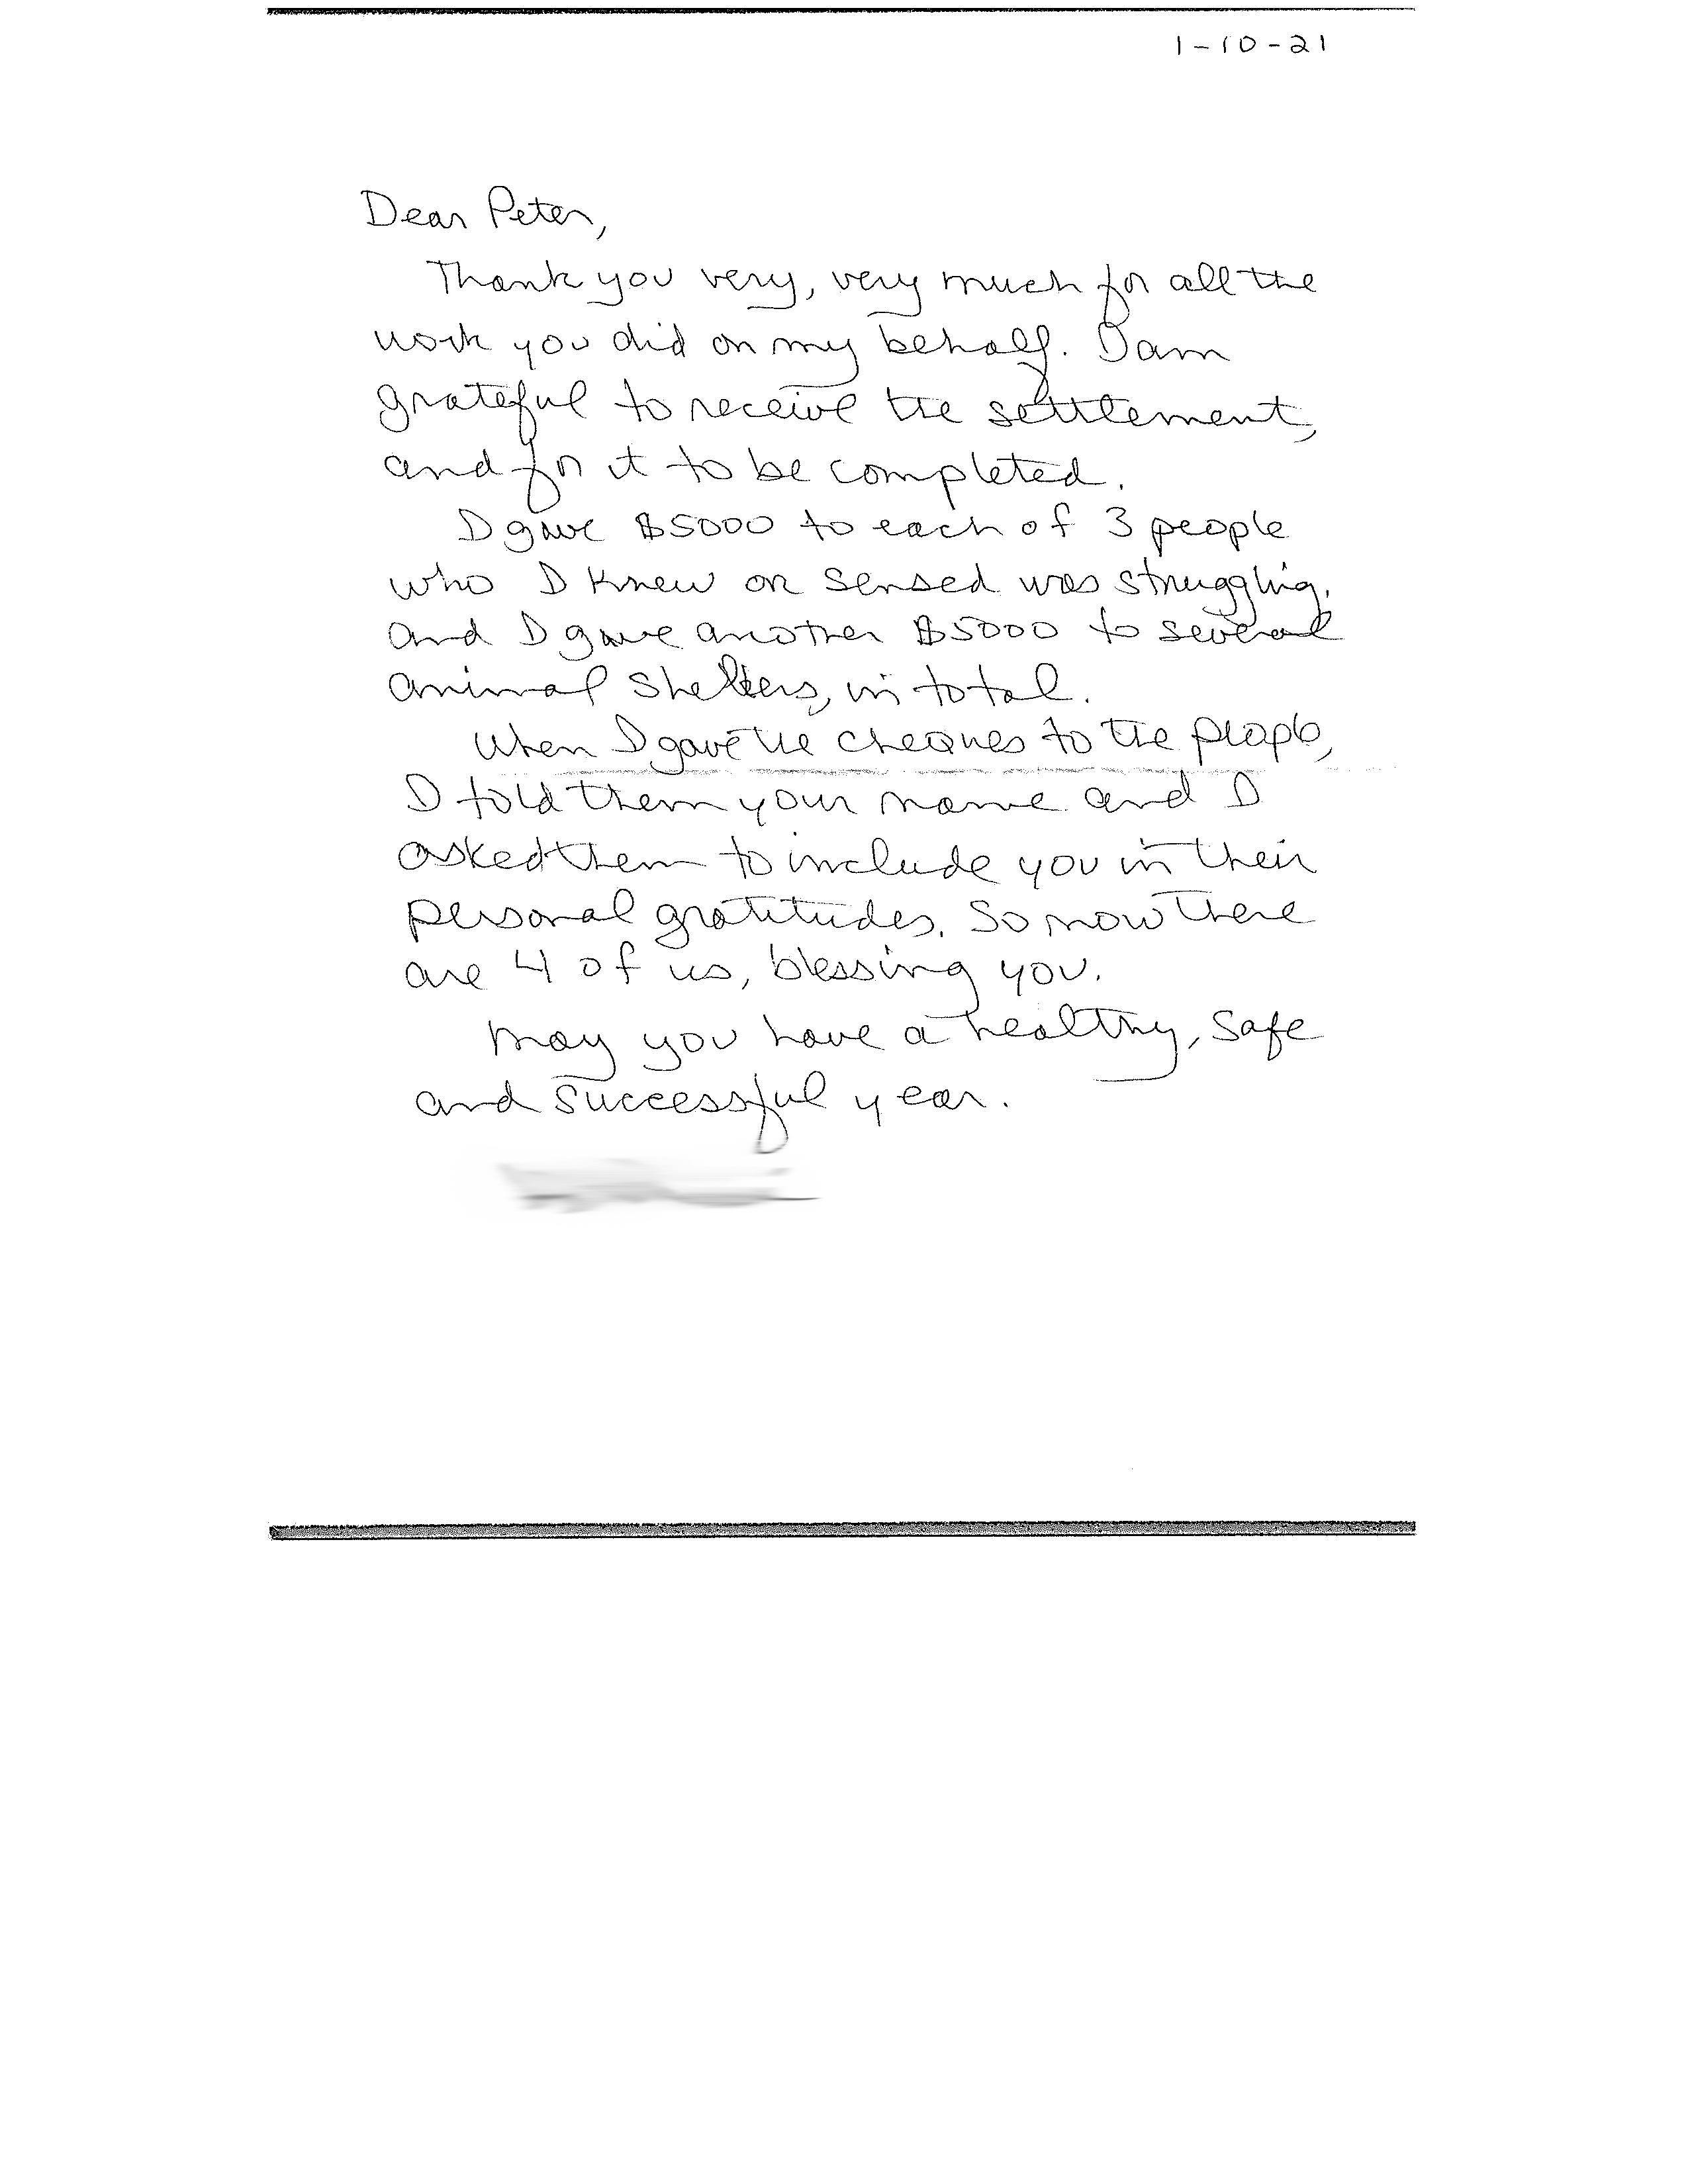 1-10-21
Dear Peter,
Thank you very, very much for all the
work you did on my behalf. I am
grateful to receive the settlement,
and for it to be completed.
I gave $5000 to each of 3 people
who I knew or sensed was struggling.
and I gave another $5000 to several
animal shelters, in total.
When I gave the cheques to the people,
I told them your name and I
asked them to include you in their
personal gratitudes. So now there
are 4 of us, blessing you.
May you have a healthy, safe
and successful year.